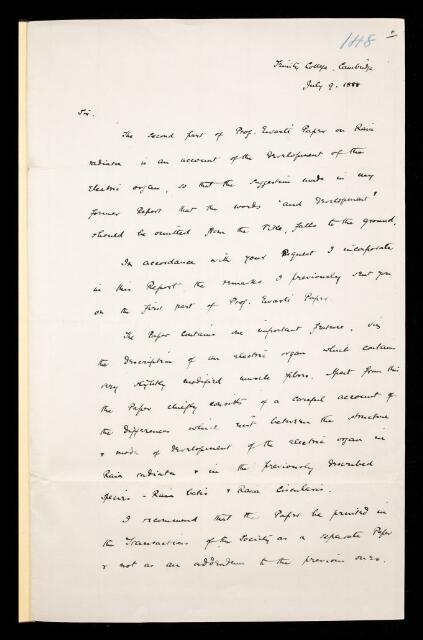 148
Trinity College, Cambridge
July 9. 1888
Sir.
The second part of Prof. Ewart's Paper on Raia
radiata is an account of the development of the
electric organ, so that the suggestion made in my
former Report that the words "and Development"
should be omitted from the Title, falls to the ground.
In accordance with your Request I incorporate
in this Report the remarks I previously sent you
on the first part of Prof. Ewart's Paper.
The Paper contains one important feature, viz
the description of an electric organ which contains
very slightly modified muscle fibres. Apart from this
the Paper chiefly consists of a careful account of
the differences which exist between the structure
& mode of development of the electric organ in
Raia radiata & in the previously described
species - Raia batis & Raia circularis.
I recommend that the Paper be printed in
the Transactions of the Society as a separate Paper
& not as an addendum to the previous ones.